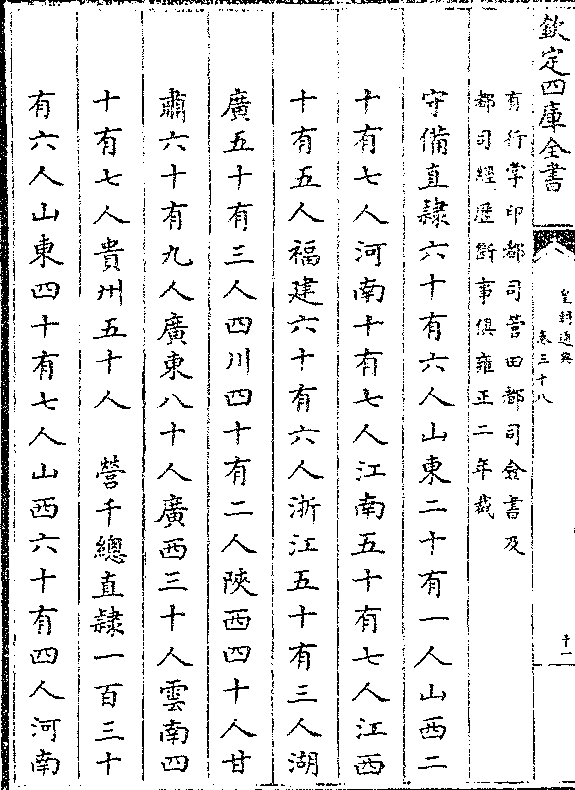 欽定四庫全書
皇朝通典
卷三十八
十一
有行掌印都司營田都司僉書及
都司經歷斷事俱雍正二年裁
守備直隸六十有六人山東二十有一人山西二
十有七人河南十有七人江南五十有七人江西
十有五人福建六十有六人浙江五十有三人湖
廣五十有三人四川四十有二人陜西四十人甘
肅六十有九人廣東八十人廣西三十人雲南四
十有七人貴州五十人　營千總直隸一百三十
有六人山東四十有七人山西六十有四人河南